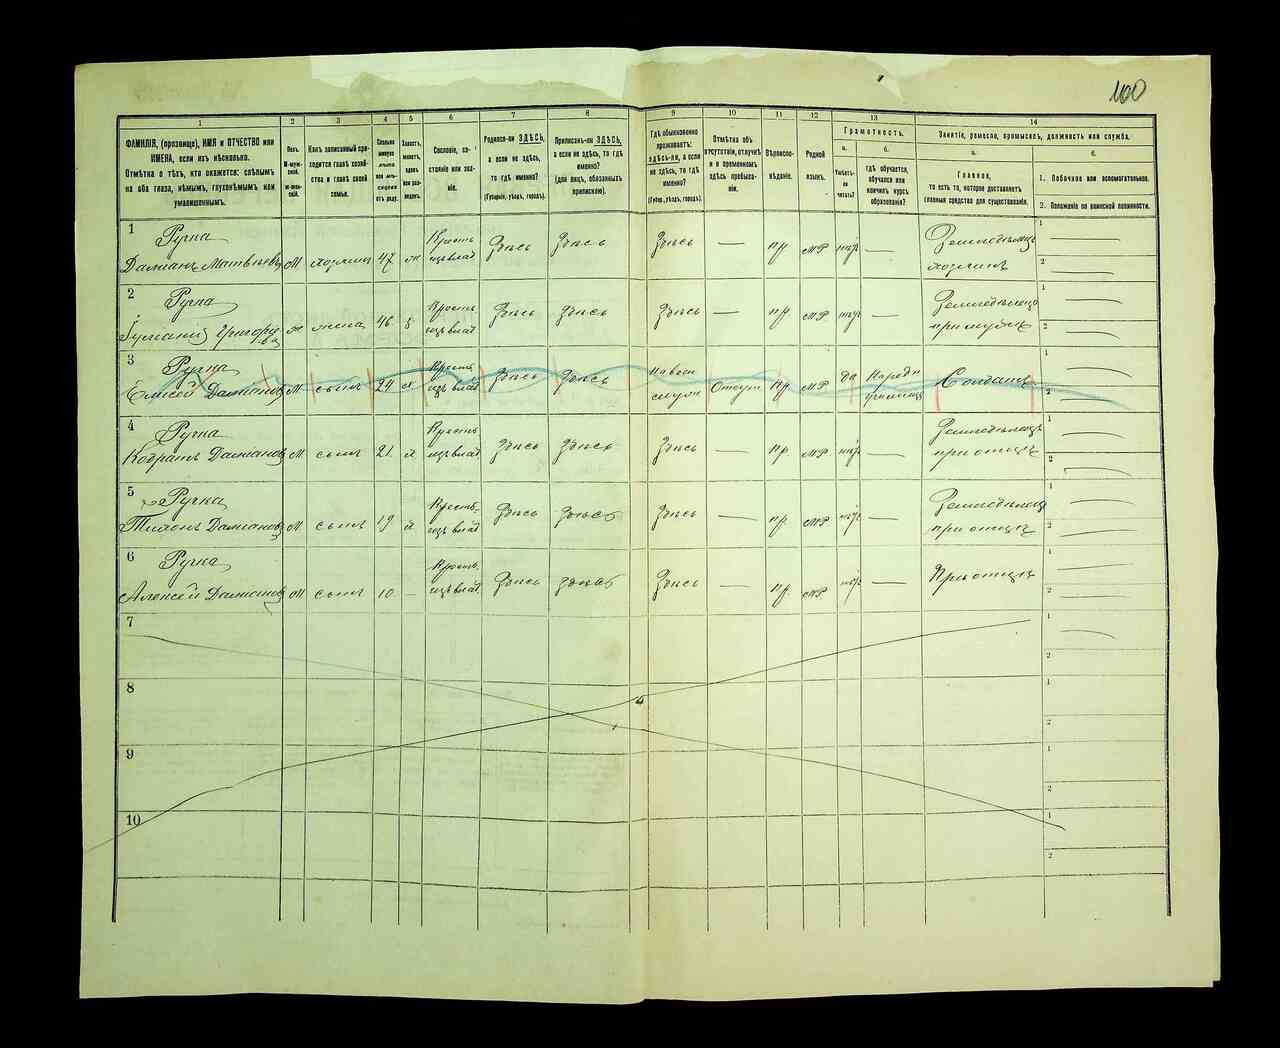 100
1
2
3
4
5
6
7
8
9
10
11
12
13
14
ФАМИЛІЯ, (прозвище), ИМЯ и ОТЧЕСТВО или
ИМЕНА, если ихъ нѣсколько.
Отмѣтка о тѣхъ, кто окажется: слѣпымъ
на оба глаза, нѣмымъ, глухонѣмымъ или
умалишеннымъ.
Полъ.
М-муж-
ской.
ж-жен-
скій.
Какъ записанный при-
ходится главѣ хозяй-
ства и главѣ своей
семьи.
Сколько
минуло
лѣтъ
или мѣ-
сяцевъ
отъ роду.
Холостъ,
женатъ,
вдовъ
или раз-
веденъ.
Сословіе, со-
стояніе или зва-
ніе.
Родился-ли ЗДѢСЬ,
а если не здѣсь,
то гдѣ именно?
(Губернія, уѣздъ, городъ).
Приписанъ-ли ЗДѢСЬ,
а если не здѣсь, то гдѣ
именно?
(для лицъ, обязанныхъ
припискою).
Гдѣ обыкновенно
проживаетъ:
здѣсь-ли, а если
не здѣсь, то гдѣ
именно?
(Губер., уѣздъ, городъ).
Отмѣтка объ
отсутствіи, отлучкѣ
и о временномъ
здѣсь пребыва-
ніи.
Вѣроиспо-
вѣданіе.
Родной
языкъ.
Грамотность.
а.
Умѣетъ-
ли
читать?
б.
гдѣ обучается,
обучался или
кончилъ курсъ
образованія?
Занятіе, ремесло, промыселъ, должность или служба.
а.
Главное,
то есть то, которое доставляетъ
главныя средства для существованія.
б.
1. Побочное или вспомогательное.
2. Положеніе по воинской повинности.
1
Ручка
Даміанъ Матвѣевъ М хозяинъ 47 ж Крестьизъ влад Здѣсь Здѣсь Здѣсь — пр МР нѣтъ — Земледѣлецъ
хозяинъ
2
Ручка
Григорьева ж жена 46 Здѣсь Здѣсь Здѣсь — пр МР нѣтъ — Земледѣлецъ
при мужѣ
3
Ручка
Елисей Даміановъ М сынъ 24 х Здѣсь Здѣсь На воен служ Отсут пр МР да Народн училищ Солдатъ
4
Ручка
Кодратъ Даміановъ М сынъ 21 х Здѣсь Здѣсь Здѣсь — пр МР нѣтъ — Земледѣлецъ
при отцѣ
5
Ручка
Тихонъ Даміановъ М сынъ 19 х Здѣсь Здѣсь Здѣсь — пр МР нѣтъ — Земледѣлецъ
при отцѣ
6
Ручка
Алексей Даміановъ М сынъ 10 — Здѣсь Здѣсь Здѣсь — пр МР нѣтъ — При отцѣ
7
8
9
10